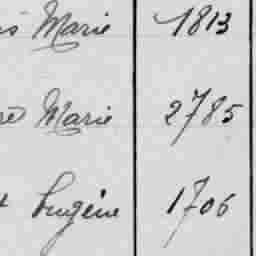 Marie 1813
Marie 2785
Eugène 1706